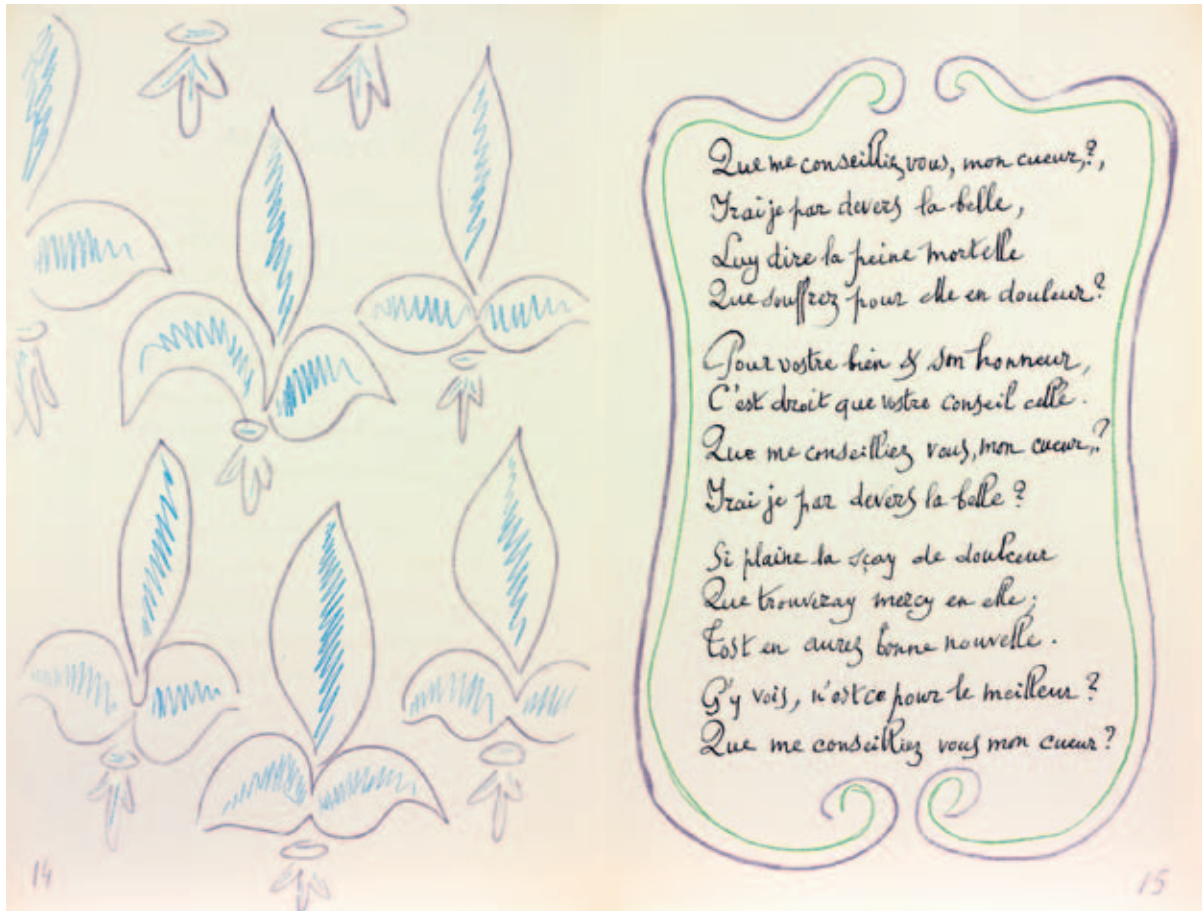 Que me conseilliez vous, mon cueur,?,
Irai je par devers la belle,
Luy dire la peine mortelle
Que souffrez pour elle en douleur?
Pour vostre bien & son honneur,
C'est droit que vostre conseil celle.
Que me conseilliez vous, mon cueur,?
Irai je par devers la belle?
Si plaine la sçay de doulceur
Que trouveray mercy en elle;
Tost en aurez bonne nouvelle.
G'y vois, n'est ce pour le meilleur?
Que me conseilliez vous mon cueur?
14
15